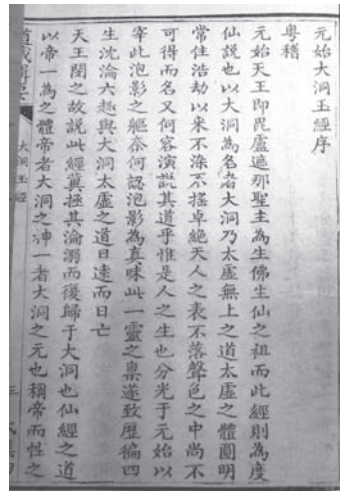 元始大洞玉經序
粵稽
元始天王即毘盧遮那聖主為生佛生仙之祖而此經則為度
仙說也以大洞為名者大洞乃太虛無上之道太虛之體圓明
常住浩劫以來不染不搖卓絕天人之表不落聲色之中尚不
可得而名又何容演說其道乎惟是人之生也分光于元始以
宰此泡影之軀奈何認泡影為真昧此一靈之稟遂致歷徧四
生沈淪六趣與大洞太虛之道日遠而日亡
天王閔之故說此經冀拯其淪溺而復歸于大洞也仙經之道
以帝一為之體帝者大洞之神一者大洞之元也稱帝而性之
道藏輯要
大洞玉經
三